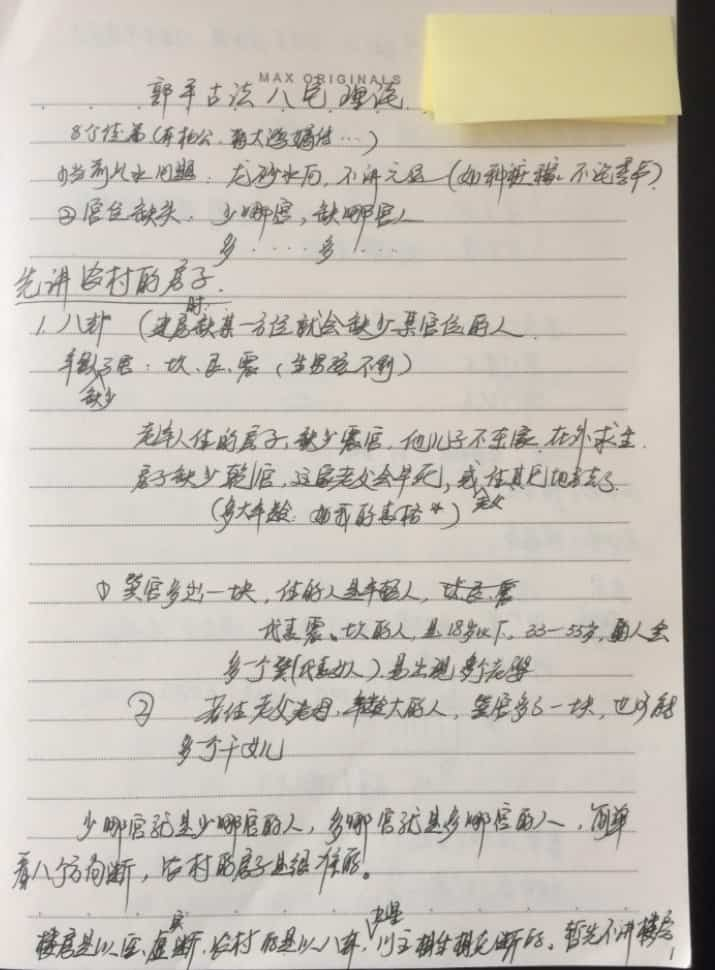 MAX ORIGINALS
郭平古法八宅理论
8个徒弟(
①当前风水问题：龙砂水向，不讲元运(如种庄稼，不论季节)
②宫位缺失：少哪宫，缺哪宫人
多 · · · · 多 · · ·
先讲农村的房子.
1. 八卦 (建房时缺某一方位就会缺少某宫位的人
缺少 : 坎、艮、震 (生男孩不利)
老年人住的房子，缺少震宫，他儿子不在家，在外求生.
房子缺少乾宫，这家老父会早死，或住其他地方去了.
(多大年龄：
① 巽宫多出一块，住的人是年轻人，坎艮震
代表震、坎的人，是18岁以下，33—55岁，的人会
多一个巽(代表女人)易出现多个老婆
② 若住老父老母，年龄大的人，巽宫多了一块，也可能
多个干女儿
少哪宫就是少哪宫的人，多哪宫就是多哪宫的人，简单
看八个方向断，农村的房子是很准的。
楼房是以 虚实断，农村的是以八卦， 生相克断的。暂先不讲楼房
1